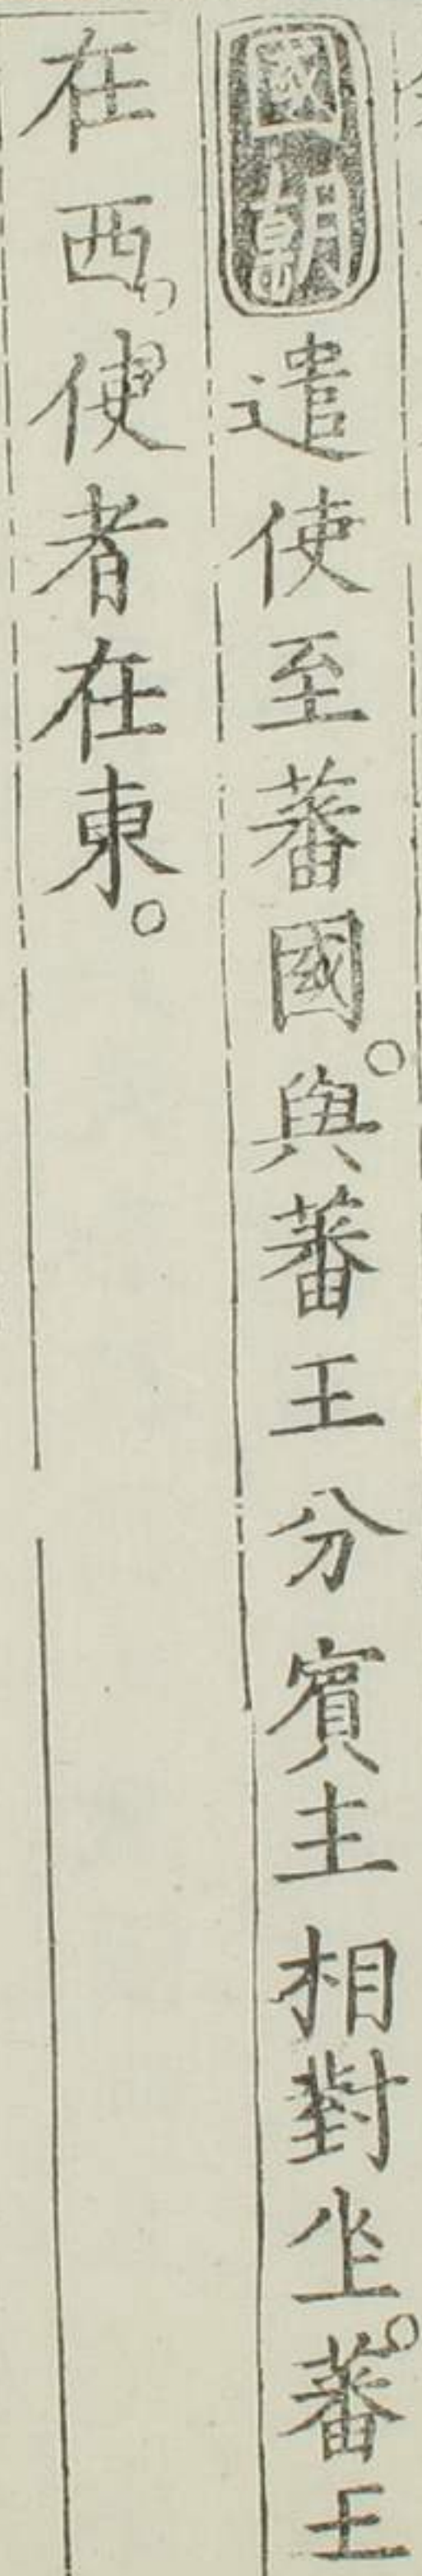 國朝遣使至蕃國。與蕃王分賓主相對坐。蕃王
在西。使者在東。